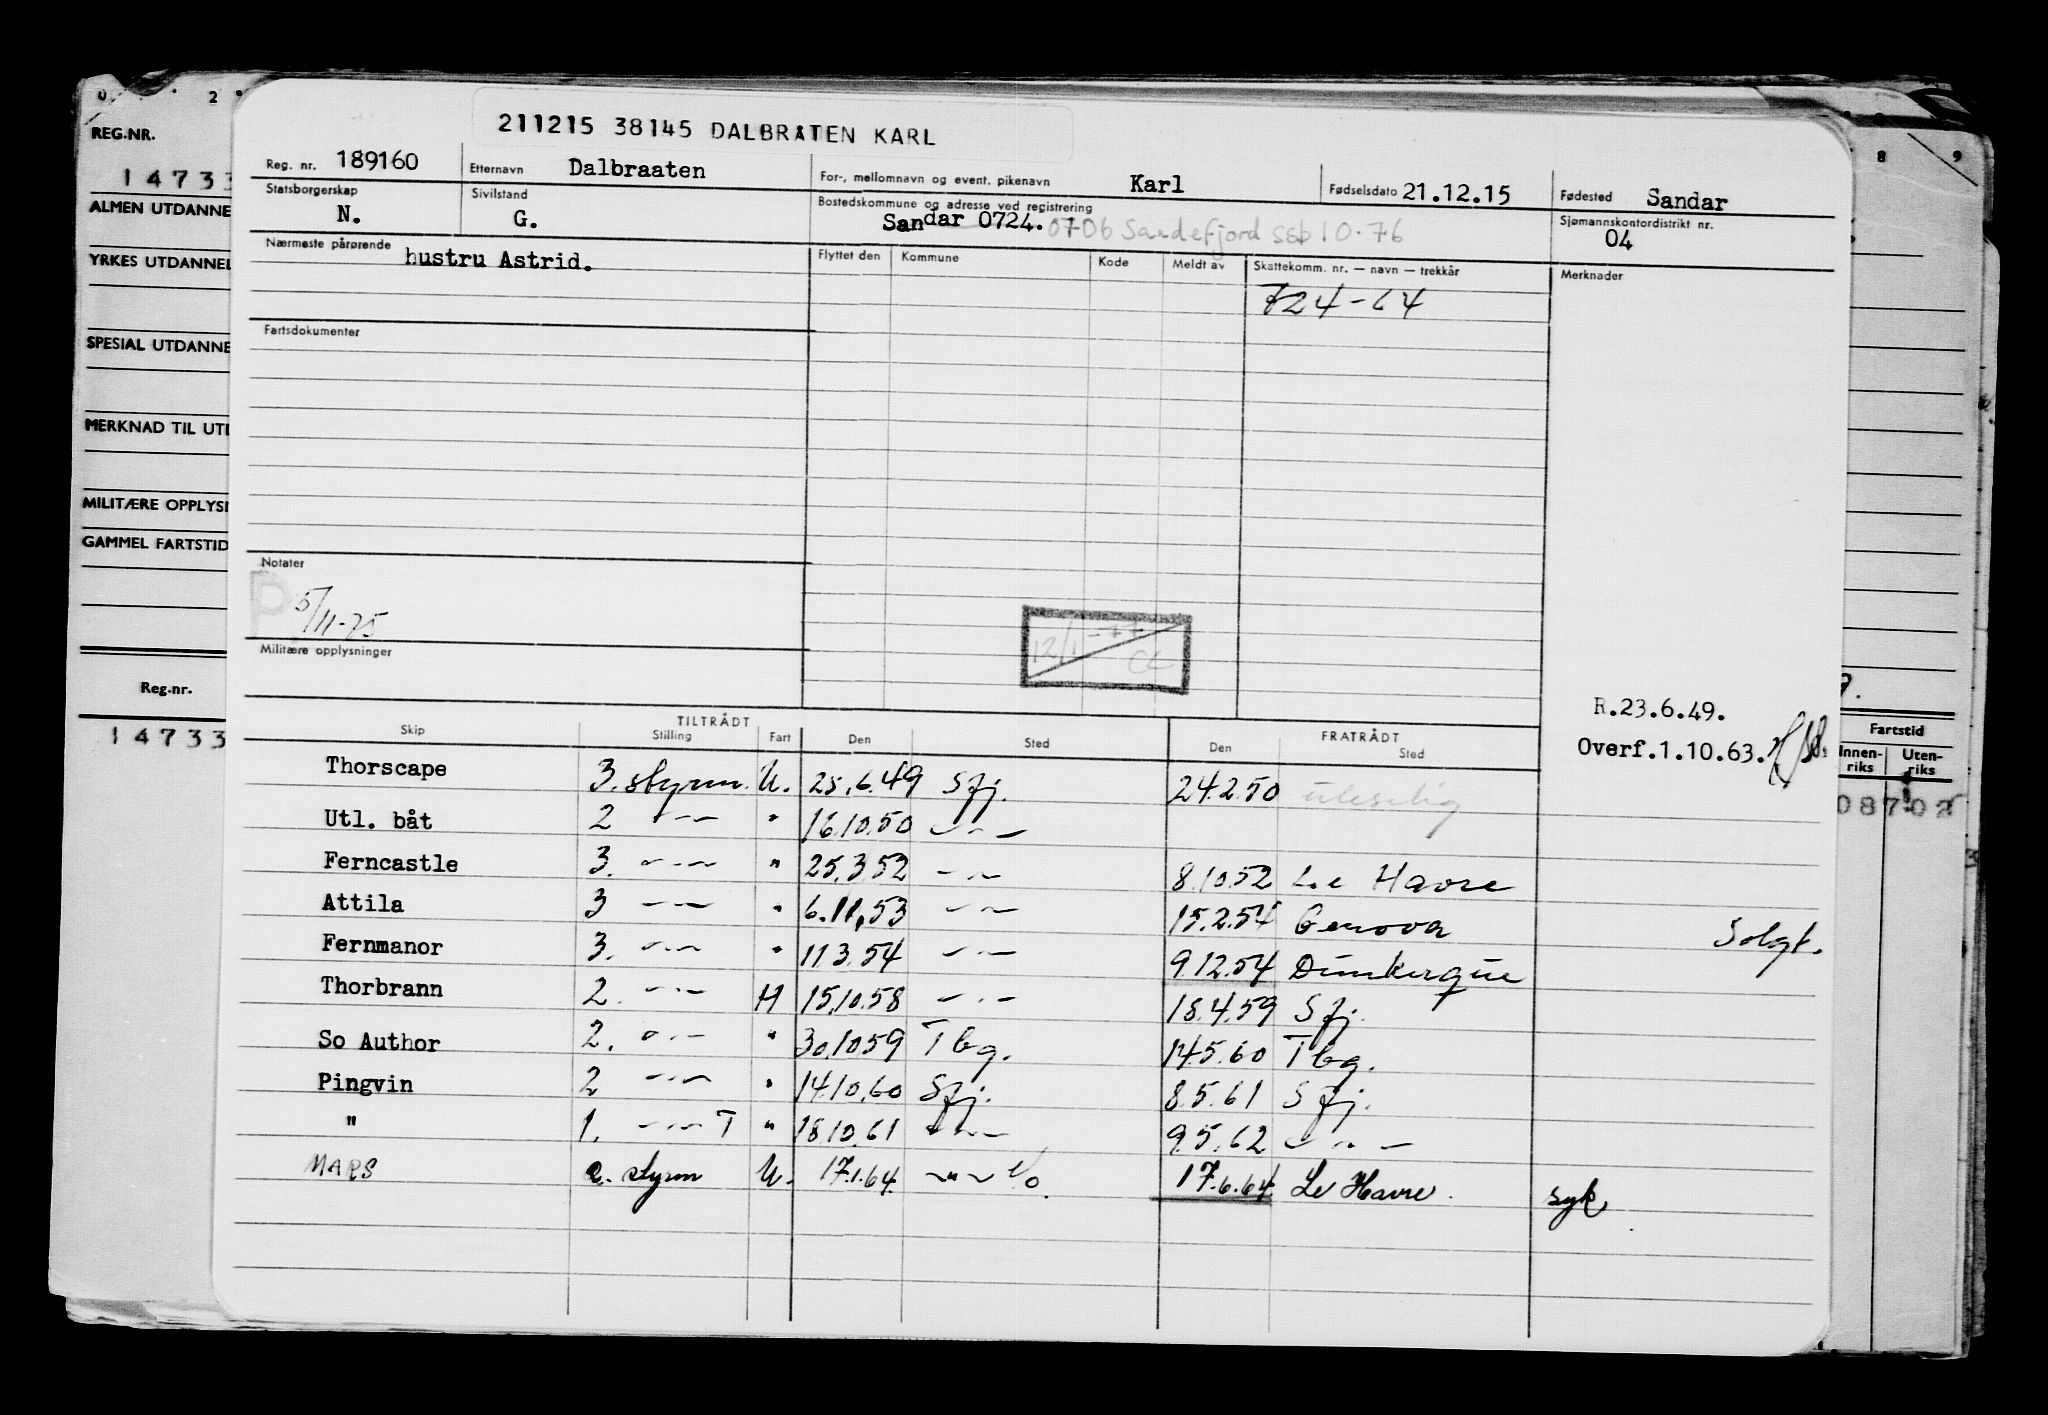 0 . . 2 .
8 9
REG.NR.
1 4 7 3 3
ALMEN UTDANNE
YRKES UTDANNEL
SPESIAL UTDANNE
MERKNAD TIL UTI
MILITÆRE OPPLYSI
GAMMEL FARTSTID
Reg.nr.
1 4 7 3 3
211215 38145 DALBRATEN KARL
Reg. nr. 189160 Etternavn Dalbraaten For-, mellomnavn og event. pikenavn Karl Fødselsdato 21.12.15 Fødested Sandar
Statsborgerskap N. Sivilstand G. Bostedskommune og adresse ved registrering Sandar 0724. 0706 Sandefjord ssb 10.76 Sjømannskontordistrikt nr. 04
Nærmeste pårørende hustru Astrid. Flyttet den Kommune Kode Meldt av Skattekomm. nr. — navn — trekkår Merknader
724-64
Fartsdokumenter
Notater
P 5/11-75
12/1-77
Militære opplysninger
R.23.6.49.
Overf.1.10.63.
TILTRÅDT FRATRÅDT
Skip Stilling Fart Den Sted Den Sted
Thorscape 3. styrm. U. 25.6.49 Sfj. 24.2.50 uleselig
Utl. båt 2 -"- " 16.10.50 -"-
Ferncastle 3. -"- " 25.3.52 -"- 8.10.52 Le Havre
Attila 3 -"- " 6.11.53 -"- 15.2.54 Genova Solgt.
Fernmanor 3. -"- " 11.3.54 -"- 9.12.54 Dunkerque
Thorbrann 2. -"- H 15.10.58 -"- 18.4.59 Sfj.
So Author 2. -"- " 30.10.59 Tbg. 14.5.60 Tbg.
Pingvin 2 -"- " 14.10.60 Sfj. 8.5.61 Sfj.
" 1. -"- T " 18.10.61 -"- 9.5.62 -"-
MARS 2. styrm U. 17.1.64. -"- 17.6.64. Le Havre. syk
Fartstid
Innen-riks Uten-riks
08702